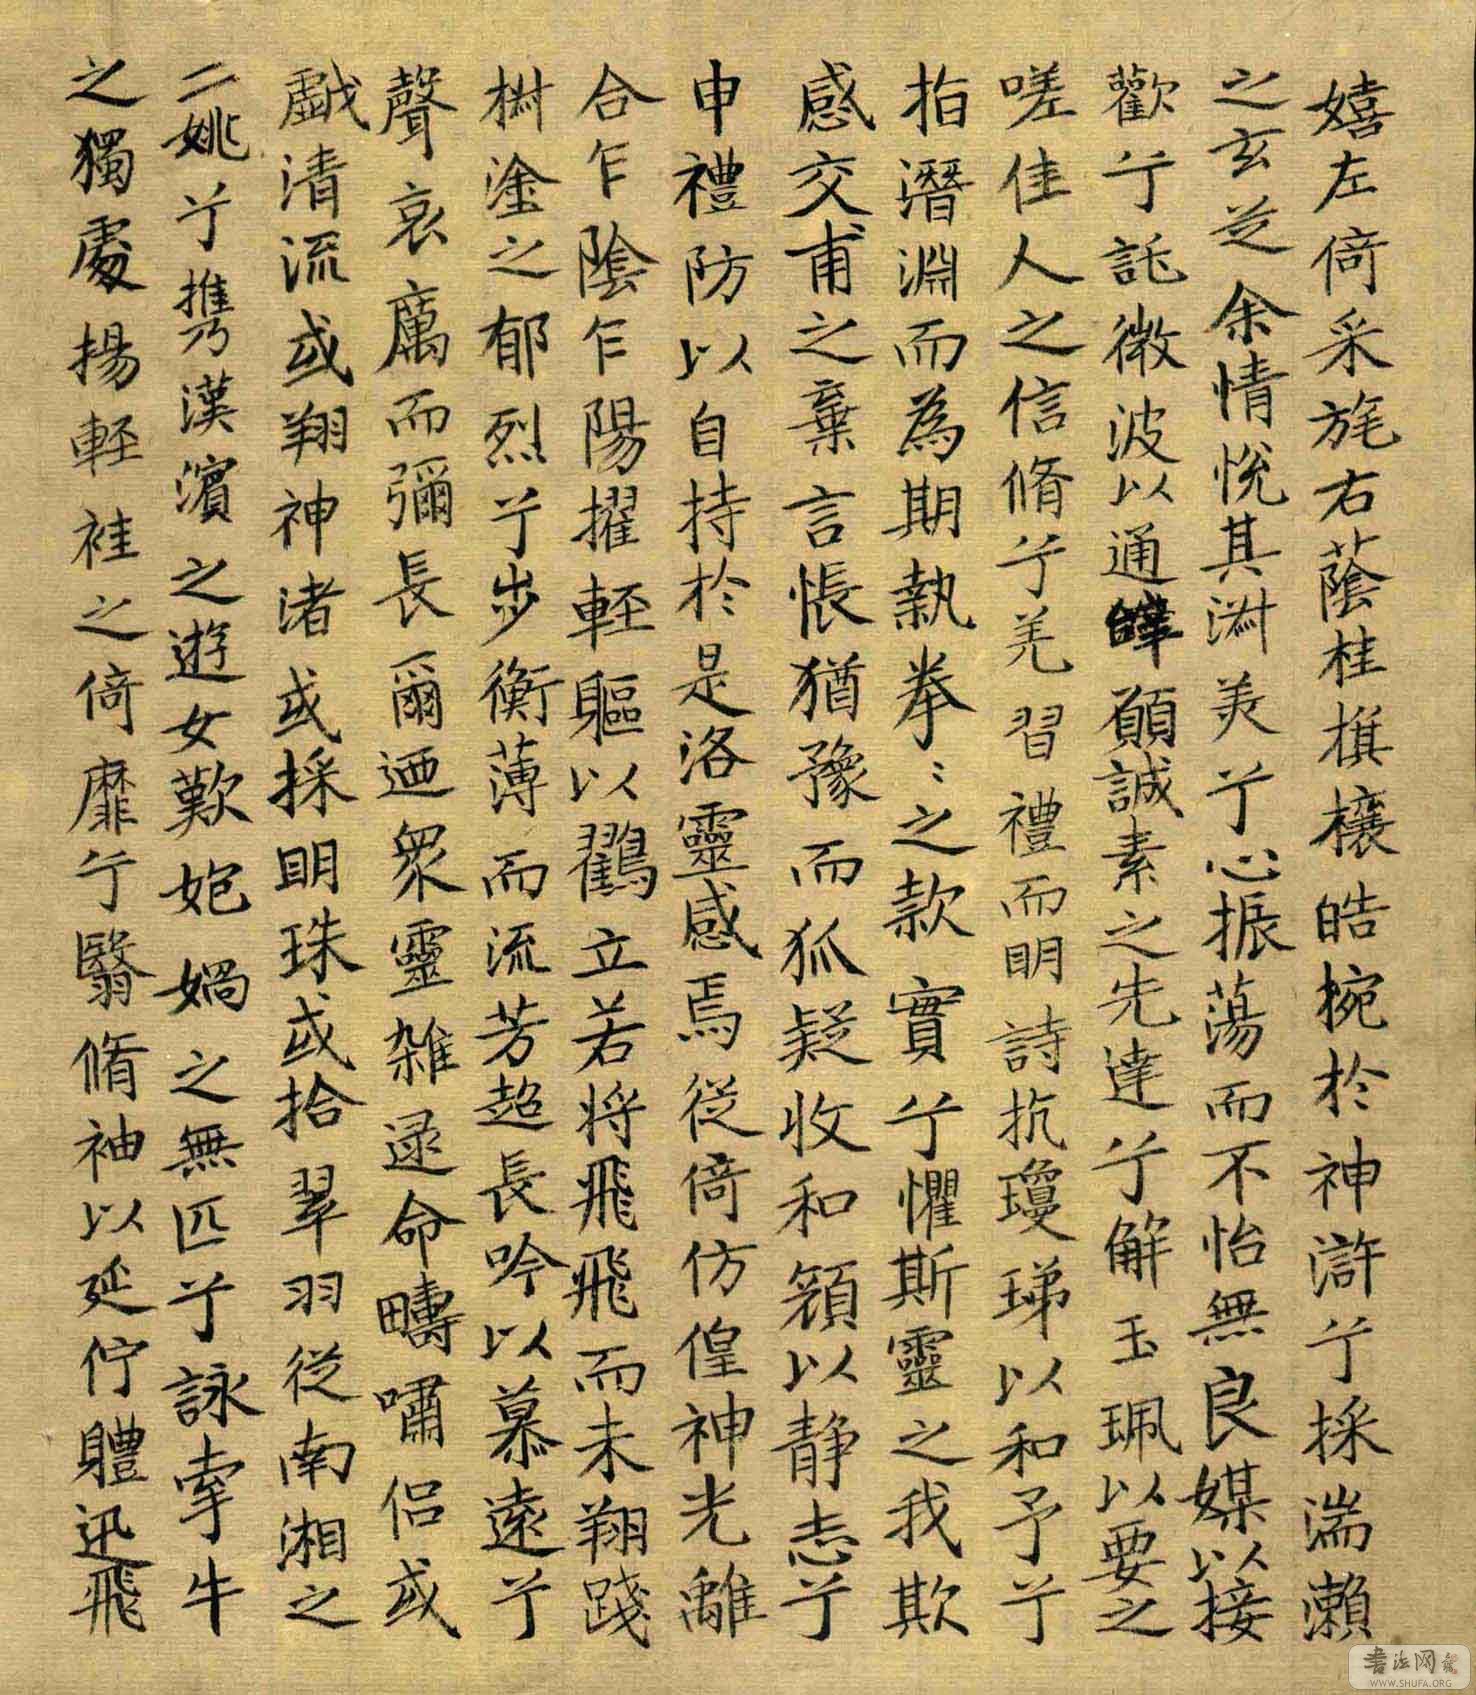 嬉左倚采旄右蔭桂旗榱皓椀於神滸兮採湍瀨
之玄芝余情悅其淑美兮心振蕩而不怡無良媒以接
歡兮託微波以通辭願誠素之先達兮解玉珮以要之
嗟佳人之信脩兮羌習禮而明詩抗瓊珶以和予兮
指潛淵而為期執拳〻之款實兮懼斯靈之我欺
感交甫之棄言悵猶豫而狐疑收和顏以静志兮
申禮防以自持於是洛靈感焉從倚仿偟神光離
合乍陰乍陽擢輕軀以鸖立若將飛飛而未翔踐
樹塗之郁烈兮步衡薄而流芳超長吟以慕遠兮
聲哀厲而彌長爾迺衆靈雜逯命疇嘯侶或
戲清流或翔神渚或採明珠或拾翠羽從南湘之
二姚兮携漢濱之遊女歎㚿媧之無匹兮詠牽牛
之獨處揚輕袿之倚靡兮翳脩袖以延佇體迅飛
书法网
WWW.SHUFA.ORG